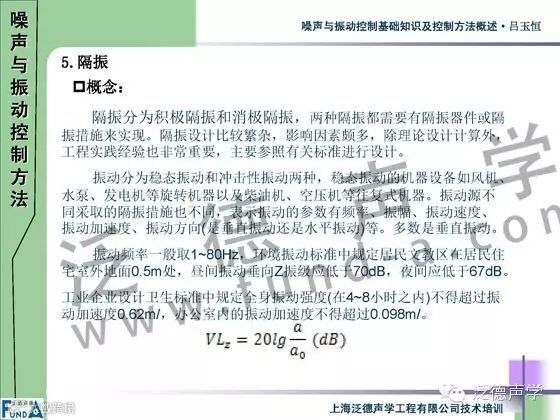 噪声与振动控制基础知识及控制方法概述·吕玉恒
噪声与振动控制方法
5. 隔振
概念：
隔振分为积极隔振和消极隔振，两种隔振都需要有隔振器件或隔
振措施来实现。隔振设计比较繁杂，影响因素颇多，除理论设计计算外，
工程实践经验也非常重要，主要参照有关标准进行设计。
振动分为稳态振动和冲击性振动两种，稳态振动的机器设备如风机、
水泵、发电机等旋转机器以及柴油机、空压机等往复式机器。振动源不
同采取的隔振措施也不同，表示振动的参数有频率、振幅、振动速度、
振动加速度、振动方向(是垂直振动还是水平振动)等。多数是垂直振动。
振动频率一般取1~80Hz，环境振动标准中规定居民文教区在居民住
宅室外地面0.5m处，昼间振动垂向Z振级应低于70dB，夜间应低于67dB。
工业企业设计卫生标准中规定全身振动强度(在4~8小时之内)不得超过振
动加速度0.62m/，办公室内的振动加速度不得超过0.098m/。
VLz = 20lg a/a0 (dB)
泛德声学
www.fund-a.com
泛德声学
FUNDA
上海泛德声学工程有限公司技术培训